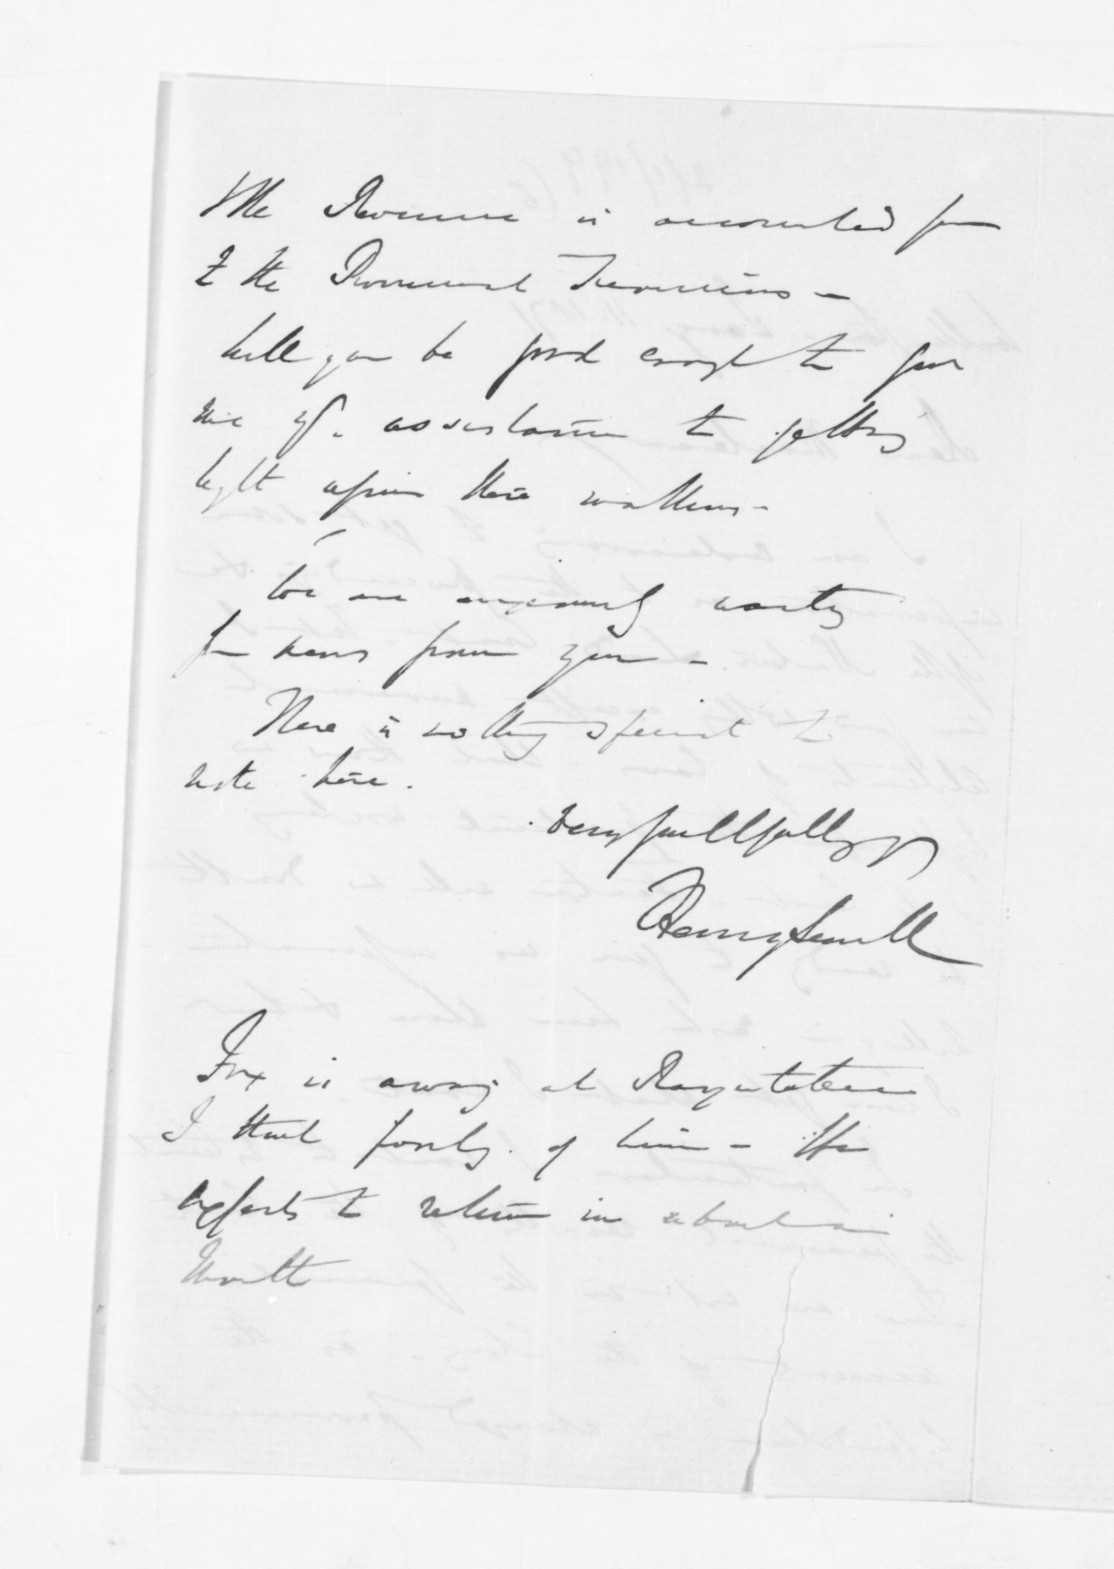 & the Revenue is accounted for
to the Provincial Treasuries -
Will you be good enough to give
me yr. assistance to getting
light upon these matters -
We are anxiously waiting
for news from you -
There is nothing special to
note here.
Very faithfully yrs
Henry Sewell
Fox is away at Rangitikei
I think fondly of him - He
expects to return in about a
Month